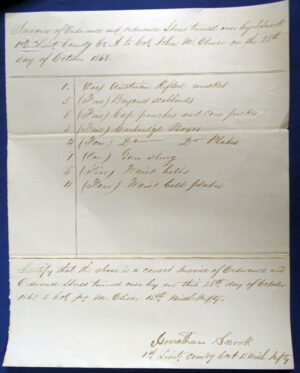 Invoice of Ordnance and ordnance Stores turned over by J. Snook
1st Lieut. Comdg Co. A to Col. John M. Oliver on the 25th
day of October 1862
1. (One) Austrian Rifled musket
5 (Five) Bayonet scabbards
5 (Five) Cap pouches and cone picks
5 (Five) Cartridge Boxes
4 (Four) Do Do Plates
1 (One) Gun sling
5 (Five) Waist belts
4 (Four) Waist belt plates
I certify that the above is a correct Invoice of Ordnance and
Ordnance Stores turned over by me this 25th day of October
1862 to Col. Jno. M. Oliver 15th Mich Infty.
Jonathan Snook
1st Lieut. Comdg Co. A 15 Mich Infty